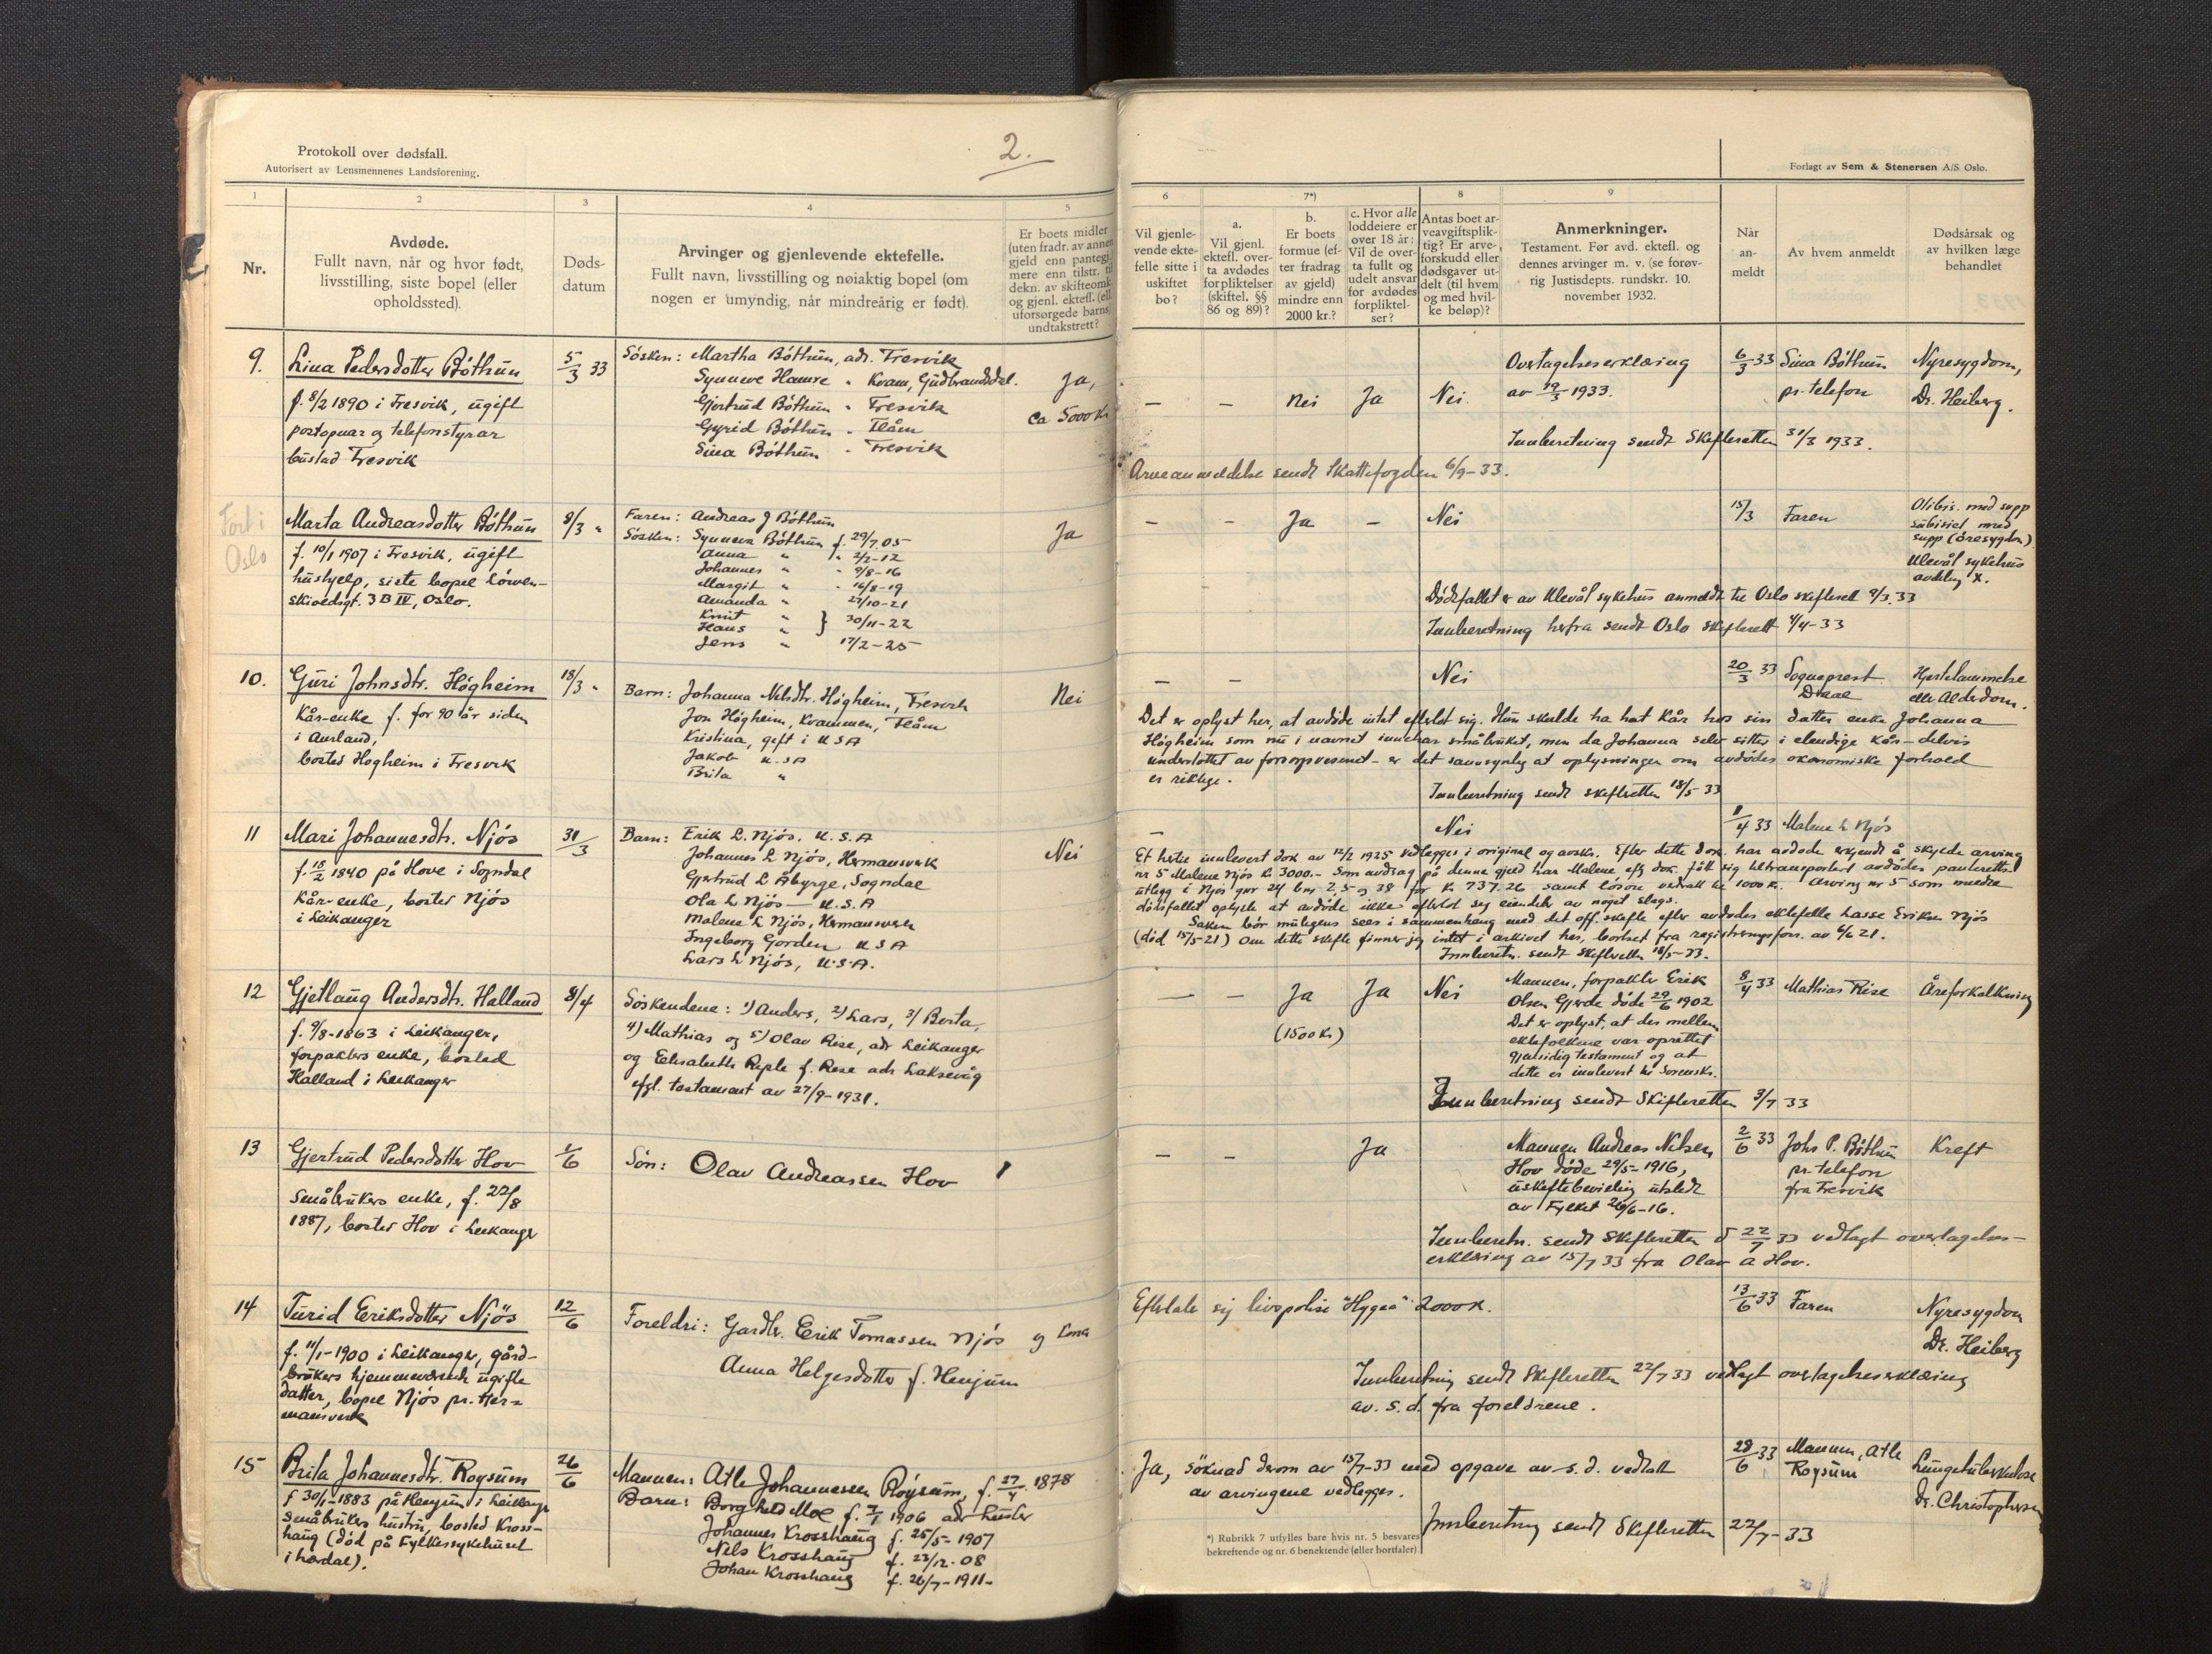 Protokoll over dødsfall.
Autorisert av Lensmennenes Landsforening.
2.
Forlagt av Sem & Stenersen A/S Oslo.
1
2
3
4
5
6
7*)
8
9
Nr.
Avdøde.
Fullt navn, når og hvor født,
livsstilling, siste bopel (eller
opholdssted).
Døds-
datum
Arvinger og gjenlevende ektefelle.
Fullt navn, livsstilling og nøiaktig bopel (om
nogen er umyndig, når mindreårig er født).
Er boets midler
(uten fradr. av annen
gjeld enn pantegj.
mere enn tilstr. til
dekn. av skifteomk.
og gjenl. ektefl. (ell.
uforsørgede barns)
undtakstrett?
Vil gjenle-
vende ekte-
felle sitte i
uskiftet
bo?
a.
Vil gjenl.
ektefl. over-
ta avdødes
forpliktelser
(skiftel. §§
86 og 89)?
b.
Er boets
formue (ef-
ter fradrag
av gjeld)
mindre enn
2000 kr.?
c. Hvor alle
loddeiere er
over 18 år:
Vil de over-
ta fullt og
udelt ansvar
for avdødes
forpliktel-
ser?
Antas boet ar-
veavgiftsplik-
tig? Er arve-
forskudd eller
dødsgaver ut-
delt (til hvem
og med hvil-
ke beløp)?
Anmerkninger.
Testament. Før avd. ektefl. og
dennes arvinger m. v. (se forøv-
rig Justisdepts. rundskr. 10.
november 1932.
Når
an-
meldt
Av hvem anmeldt
Dødsårsak og
av hvilken læge
behandlet
9.
Lina Pedersdotter Bóthun
f. 8/2 1890 i Fresvik, ugift
postopnar og telefonstyrar
bustad Fresvik
5/3 33
Sósken: Martha Bóthun, adr. Fresvik
Synneve Hamre " Kvam, Gudbrandsdal.
Gjertrud Bóthun " Fresvik
Gyrid Bóthun " Flåm
Sina Bóthun " Fresvik
Ja,
ca 5000 Kr
— — Nei Ja Nei
Overtagelseserklæring
av 19/3 1933.
6/3 33 Sina Bóthun
pr. telefon
Nyresygdom,
Dr. Heiberg.
Innberetning sendt Skifteretten 31/3 1933.
Arveanmeldelse sendt Skattefogden 6/9-33.
Fort i
Oslo
Marta Andreasdotter Bóthun
f. 10/1 1907 i Fresvik, ugift
hushjelp, siste bopel Lówen-
skioldsgt. 3 B IV, Oslo.
8/3 "
Faren: Andreas J Bóthun
Sósken: Synneva Bóthun f. 29/7 05
Anna " " 2/2-12
Johannes " " 9/8-16
Margit " " 16/8-19
Amanda " 27/10-21
Knut "
Hans " } 30/11-22
Jens " 17/2-25
Ja
— — Ja — Nei
15/3 Faren
Otibis. med supp
subisiel med
supp (óresygdom)
Ulevål sykehus
avdeling X.
Dódsfallet er av Ulevål sykehus anmeldt til Oslo skifterett 9/3.33
Innberetning herfra sendt Oslo skifterett 4/4-33
10.
Guri Johnsdtr. Hógheim
Kår-enke f. for 90 år siden
i Aurland,
bosted Hogheim i Fresvik
18/3 "
Barn: Johanna Nelsdtr. Hógheim, Fresvik
Jon Hógheim, Kvammen, Flåm
Kristina, gift i USA
Jakob U.SA
Brita "
Nei
— — Nei
20/3 33 Sogneprest
Daae
Hjertelammelse
eller Alderdom.
Det er oplyst her, at avdóde intet efterlot sig. Hun skulde ha hat Kår hos sin datter enke Johanna
Hógheim som nu i navnet innehar småbruket, men da Johanna selv sitter i elendige kår – delvis
understóttet av forsorgsvesenet – er det sannsynlig at oplysningen om avdódes okonomiske forhold
er riktige.
Innberetning sendt skifteretten 18/5-33
11
Mari Johannesdtr. Njós
f. 18/2 1840 på Hove i Sogndal
Kår-enke, bosted Njós
i Leikanger
31/3
Barn: Erik L. Njós, U.S.A
Johannes L Njós, Hermansverk
Gjertrud L Åbyrge, Sogndal
Ola L Njós — U.S.A
Malene L Njós, Hermansverk
Ingeborg Gorden U S A
Lars L Njós, U.S.A.
Nei
— Nei
1/4 33 Malene L Njós
Et hertil innlevert dok av 12/2 1925 vedlegges i original og avskr. Efter dette dok. har avdode erkjendt å skylde arving
nr 5 Malene Njós kr 3000.- Som avdrag på denne gjeld har Malene eftr dok. fått sig betransportert avdódes panteretts-
utlegg i Njós gnr 24 bnr 2, 5 og 38 for Kr. 737.26 samt lósóre vedtatt til 1000 K. Arving nr 5 som meldte
dódsfallet oplyste at avdóde ikke efterlot sig eiendeler av noget slags.
Saken bór muligens sees i sammenheng med det off. skifte efter avdodes ektefelle Lasse Eriksen Njós
(dód 15/5-21) Om dette skifte finner jeg intet i arkivet her, bortset fra registreringsforr. av 6/6 21.
Innberetn. sendt Skifteretten 18/5-33.
12
Gjetlaug Andersdtr. Halland
f. 9/8-1863 i Leikanger,
forpakters enke, bosted
Halland i Leikanger
8/4
Sóskendene: 1) Anders, 2) Lars, 3) Berta,
4) Mathias og 5) Olav Rise, adr Leikanger
og Elisabeth Reple f. Rise adr Laksevåg
efgl. testament av 27/9-1931.
— — Ja Ja Nei
(1500 Kr)
Mannen, forpakter Erik
Olsen Gjerde dóde 29/6 1902
Det er oplyst, at der mellem
ektefolkene var oprettet
gjensidig testament og at
dette er innlevert til Sorenskr.
8/4 33 Mathias Rise
Åreforkalkning
Innberetning sendt Skifteretten 3/7 33
13
Gjertrud Pedersdotter Hov
Småbrukers enke, f. 22/8
1887, bosted Hov i Leikanger
1/6
Són: Olav Andreassen Hov
— — Ja
Mannen Andreas Nilsen
Hov dóde 29/5-1916,
uskiftebevilling utstedt
av Fylket 26/6-16.
2/6 33 Johs P. Bóthun
pr. telefon
fra Fresvik
Kreft
Innberetn. sendt Skifteretten d 22/7 33 vedlagt overtagelses-
erklæring av 15/7 33 fra Olav A Hov.
14
Turid Eriksdotter Njós
f. 11/1-1900 i Leikanger, gård-
brukers hjemmeværende ugifte
datter, bopel Njós pr. Her-
mansverk
12/6
Foreldri: Gardbr. Erik Tomassen Njós og kona
Anna Helgesdotter f. Henjum
Efterlate sig livspolise "Hygea" 2000 K.
13/6 33 Faren
Nyresygdom
Dr. Heiberg
Innberetning sendt Skifteretten 22/7 33 vedlagt overtagelseserklæring
av. s. d. fra foreldrene.
15
Brita Johannesdtr. Roysum
f 30/1-1883 på Henjum i Leikanger
Småbrukers hustru, bosted Kross-
haug (dód på Fylkessykehuset
i Lærdal).
26/6
Mannen: Atle Johannessen Róysum, f. 27/4 1878
Barn: Borghild Moe f. 7/1 1906 adr Luster
Johannes Krosshaug f. 25/5-1907
Nils Krosshaug f. 23/12-08
Johan Krosshaug f. 26/7-1911-
Ja, sóknad derom av 15/7-33 med opgave av s. d. vedtatt
av arvingene vedlegges.
28/6 33 Mannen, Atle
Roysum
Lungetuberkulose
Dr. Christophersen
Innberetning sendt Skifteretten 22/7-33
*) Rubrikk 7 utfylles bare hvis nr. 5 besvares
bekreftende og nr. 6 benektende (eller bortfaler)